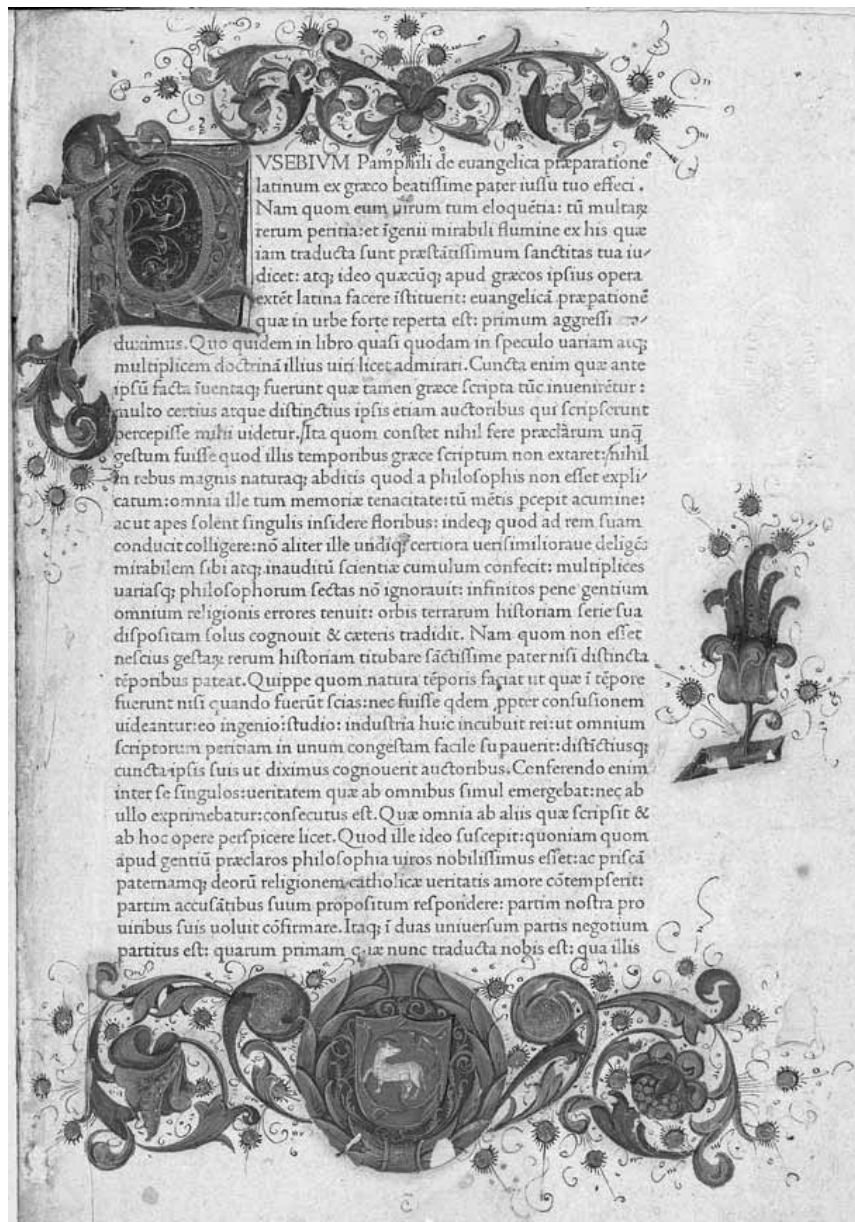 VSEBIVM Pamphili de euangelica præparatione
latinum ex græco beatissime pater iussu tuo effeci.
Nam quom eum uirum tum eloquẽtia: tũ multaꝝ
rerum peritia: et ĩgenii mirabili flumine ex his quæ
iam traducta sunt præstãtissimum sanctitas tua iu/
dicet: atq; ideo quæcũq; apud græcos ipsius opera
extẽt latina facere ĩstituerit: euangelicã præpationẽ
quæ in urbe forte reperta est: primum aggressi
duximus. Quo quidem in libro quasi quodam in speculo uariam atq;
multiplicem doctrinã illius uiri licet admirari. Cuncta enim quæ ante
ipsũ facta ĩuentaq; fuerunt quæ tamen græce scripta tũc inuenirẽtur:
multo certius atque distinctius ipsis etiam auctoribus qui scripserunt
percepisse mihi uidetur. Ita quom constet nihil fere præclarum unq̃
gestum fuisse quod illis temporibus græce scriptum non extaret: nihil
in rebus magnis naturaq; abditis quod a philosophis non esset expli/
catum: omnia ille tum memoriæ tenacitate: tũ mẽtis pcepit acumine:
ac ut apes solent singulis insidere floribus: indeq; quod ad rem suam
conducit colligere: nõ aliter ille undiq; certiora uerisimilioraue deligẽs
mirabilem sibi atq; inauditũ scientiæ cumulum confecit: multiplices
uariasq; philosophorum sectas nõ ignorauit: infinitos pene gentium
omnium religionis errores tenuit: orbis terrarum historiam serie sua
dispositam solus cognouit & cæteris tradidit. Nam quom non esset
nescius gestaꝝ rerum historiam titubare sãctissime pater nisi distincta
tẽporibus pateat. Quippe quom natura tẽporis faciat ut quæ ĩ tẽpore
fuerunt nisi quando fuerũt scias: nec fuisse qdem ꝓpter confusionem
uideantur: eo ingenio: studio: industria huic incubuit rei: ut omnium
scriptorum peritiam in unum congestam facile supauerit: distĩctiusq;
cuncta ipsis suis ut diximus cognouerit auctoribus. Conferendo enim
inter se singulos: ueritatem quæ ab omnibus simul emergebat: nec ab
ullo exprimebatur: consecutus est. Quæ omnia ab aliis quæ scripsit &
ab hoc opere perspicere licet. Quod ille ideo suscepit: quoniam quom
apud gentiũ præclaros philosophia uiros nobilissimus esset: ac priscã
paternamq; deorũ religionem catholicæ ueritatis amore cõtempserit:
partim accusãtibus suum propositum respondere: partim nostra pro
uiribus suis uoluit cõfirmare. Itaq; ĩ duas uniuersum partis negotium
partitus est: quarum primam quæ nunc traducta nobis est: qua illis